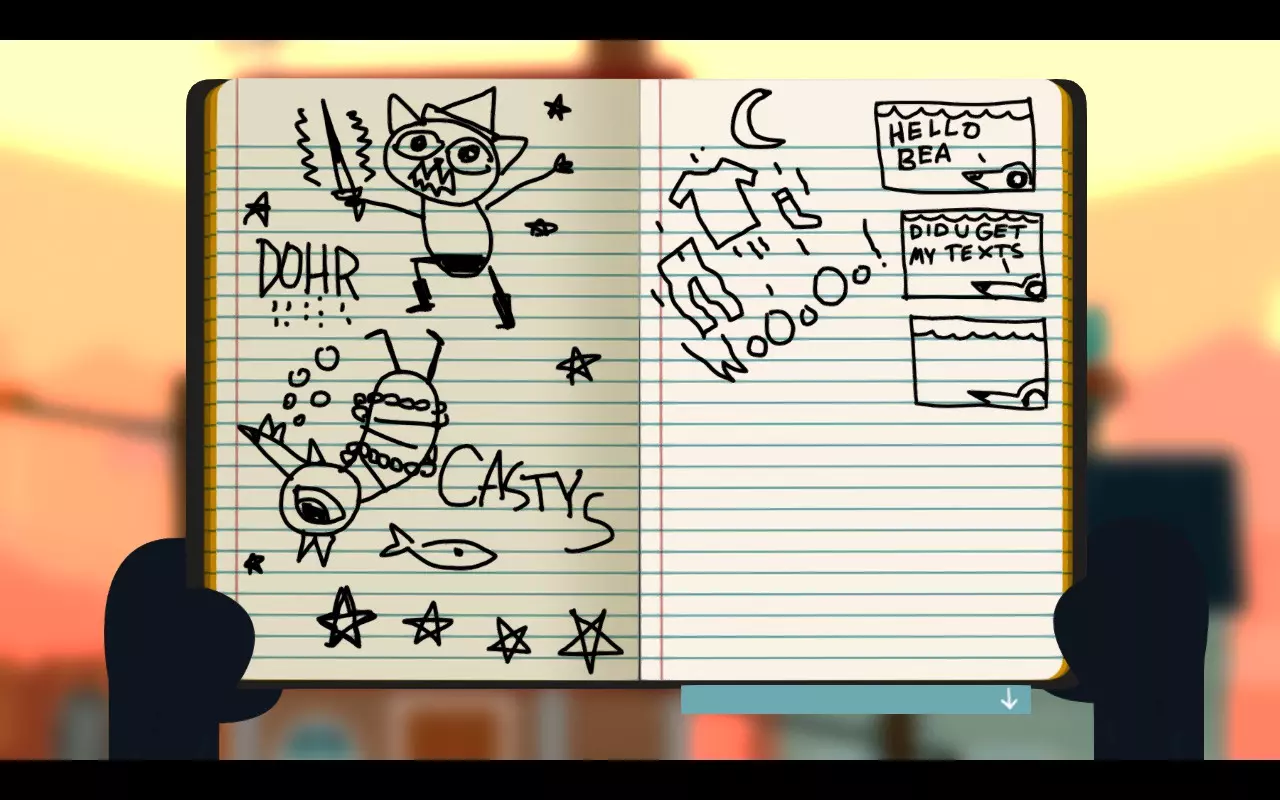 DOHR
CASTYS
HELLO
BEA
DID U GET
MY TEXTS